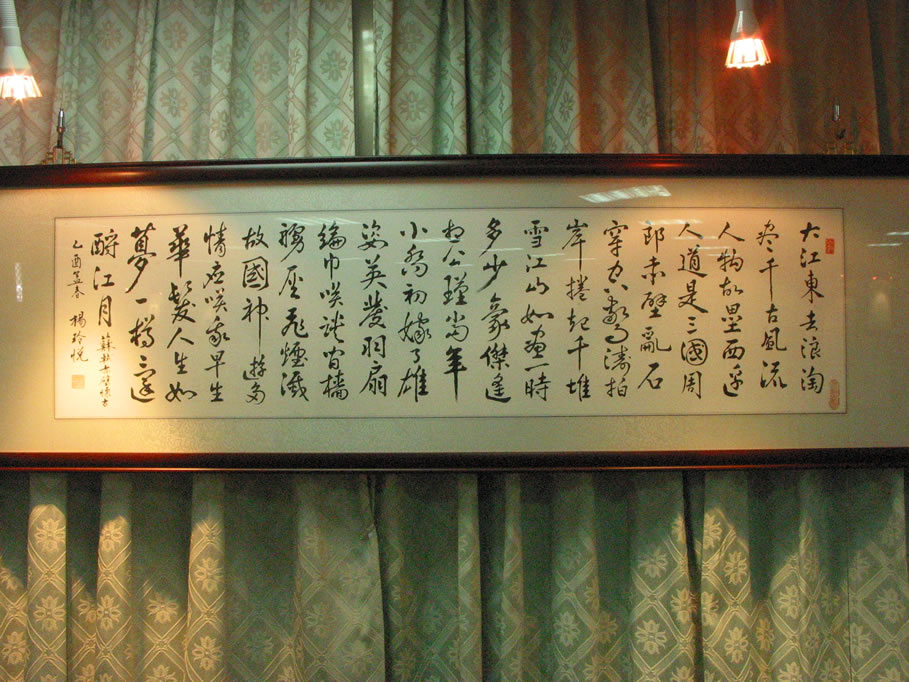 大江東去浪淘
尽千古風流
人物故壘西邊
人道是三國周
郎赤壁亂石
穿空驚濤拍
岸捲起千堆
雪江山如畫一時
多少豪傑遙
想公瑾當年
小喬初嫁了雄
姿英發羽扇
綸巾咲談間檣
櫓灰飛煙滅
故國神遊多
情应咲我早生
華髮人生如
夢一樽還
酹江月 蘇軾赤壁懷古
乙酉孟春 楊玲悅